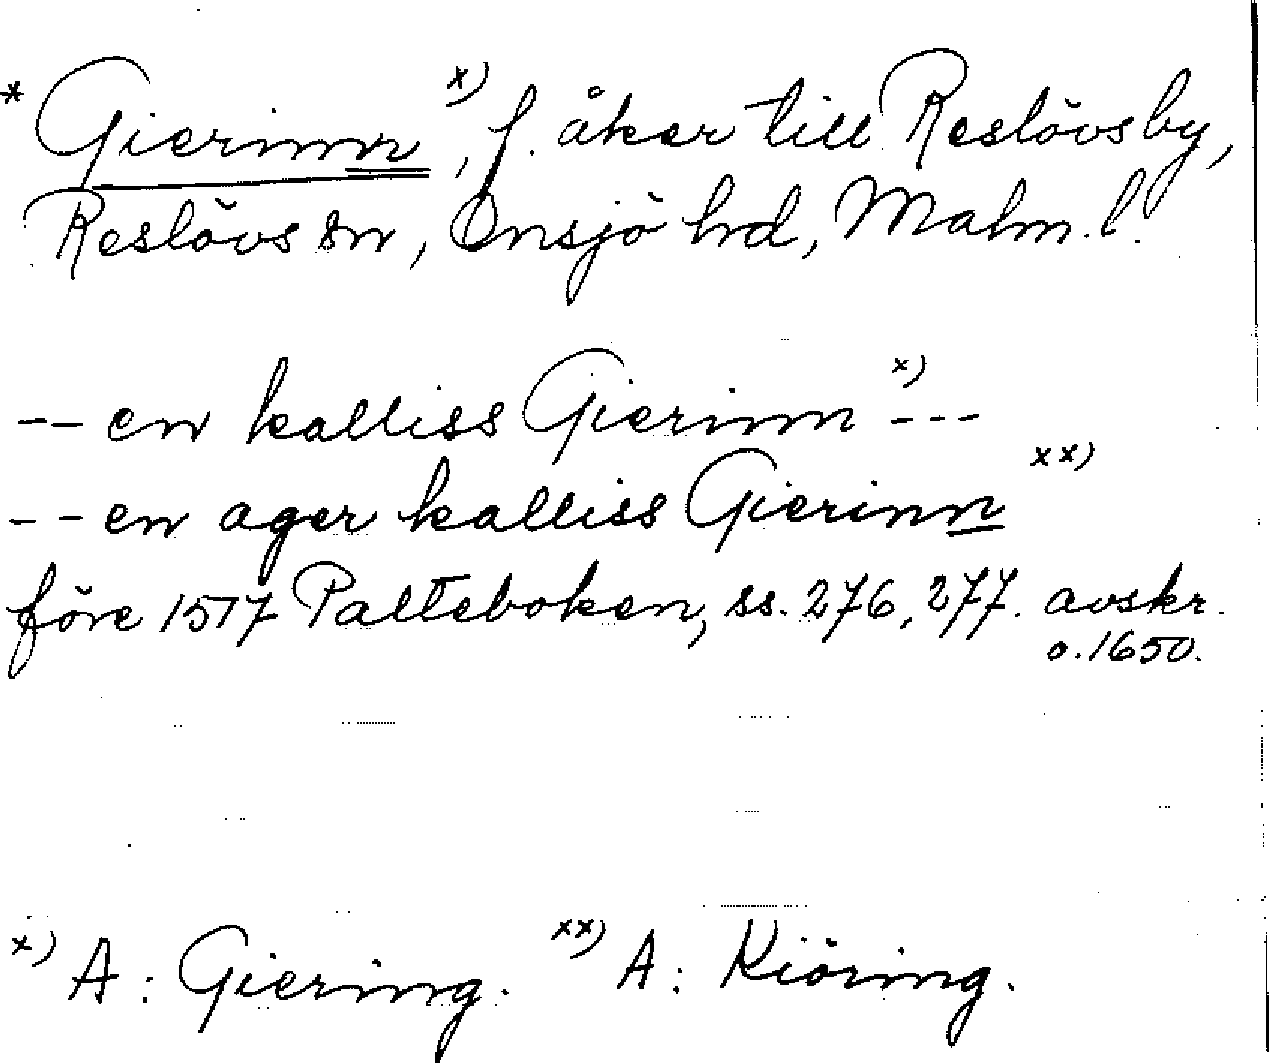 * Gierinn x), f. åker till Reslövs by,
Reslövs sn, Onsjö hd, Malm. l.
-- en kalliss Gierinn x) ---
-- en ager kalliss Gierinn xx)
före 1517 Palteboken, ss. 276, 277. avskr.
o. 1650.
x) A: Giering. xx) A: Kiöring.